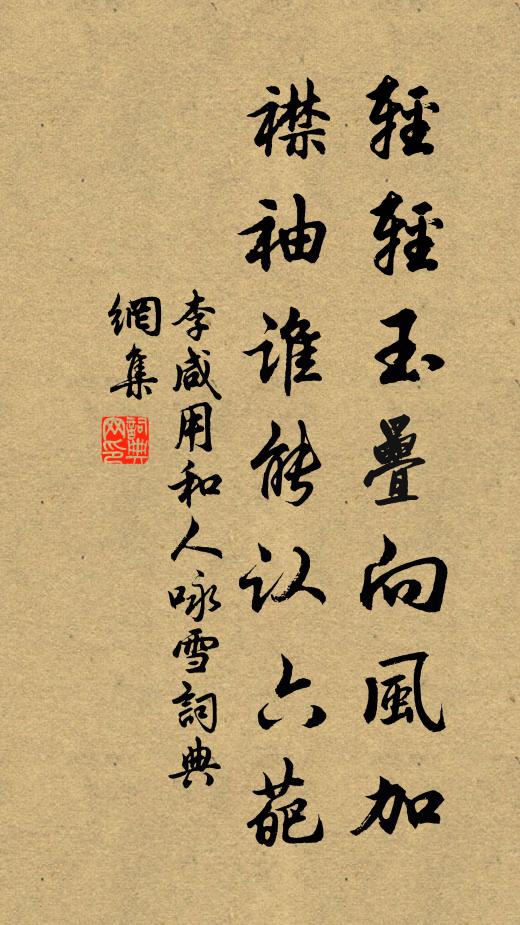 輕輕玉疊向風加
襟袖誰能认六葩
李咸用和人咏雪詞典
網集
詞典
网印